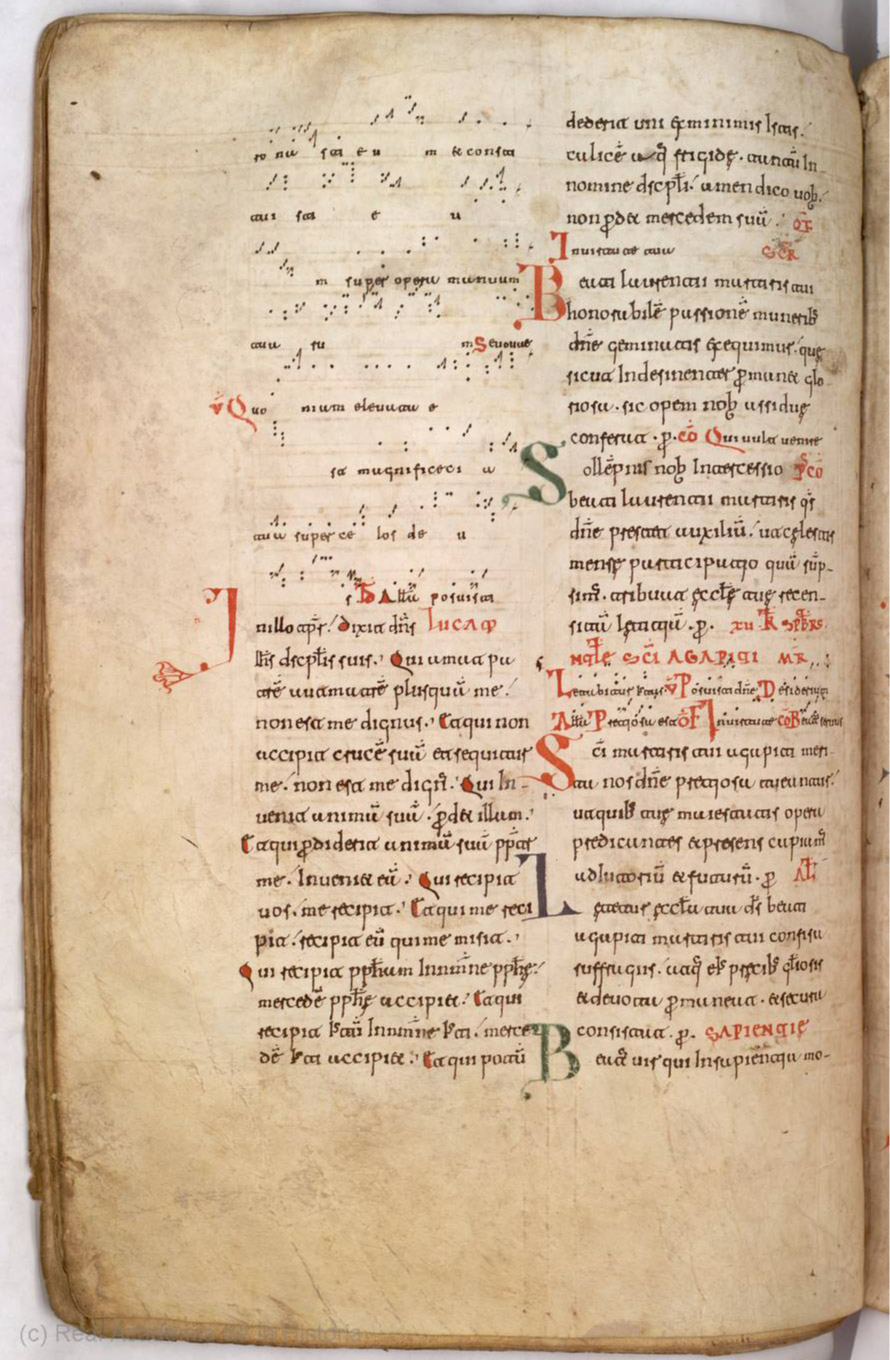 ro na sti e u m et consti
tui sti e u
m super opera manuum
tua ru m Seuouae
v̄ Quo niam eleuata e
st magnificenci a
tua super ce los de u
s B Alłła posuisti
Jn illo tp̄r. dixit dn̄s lucam
Ihs dscpłis suis. Qui amat pa
trē aut matrē plusquā me.
non est me dignus. Et qui non
accipit crucē suā et sequitur
me. non est me digns̄. Qui In-
uenit animā suā. ꝑdet illam.
Et qui ꝑdiderit animā suā ppt̄er
me. Inueniet eā. Qui recipit
uos. me recipit. Et qui me reci
pit. recipit eū qui me misit.
Qui recipit ppħam In nom̄ne ppħe.
mercedē ppħe accipiet. Et qui
recipit iust̄ū In nom̄ne iusti. merce
dē iusti accipiet. Et qui potū
dederit uni ex minimis Istis.
calicē aq̄ frigide. tantū In
nomine dscpłi. amen dico uob.
non ꝑdet mercedem suā. OF
In uirtute tua SCR
Beati laurentii martiris tui
honorabilē passionē munerib;
dn̄e geminatis exequimur. que
sicut Indesinenter ꝑmanet glo
riosa. sic opem nob assidue
conferat. p. cō Qui uult uenire
Sollēpnis nob Intercessio pꝰcō
beati laurentii martiris qs̄
dn̄e prestet auxiliū. ut celestis
mense participatio quā sūp-
sim̄. tribuat eccłe tue recen-
sitā letitiā. p. xv K spbrs.
nałe sc̄i AGAPITI MR.
Letabitur iustus v̄ Posuisti dn̄e Desiderium
Alłła Preciosa est OF In uirtute cō Beatus seruus
Sc̄i martiris tui agapiti meri
ta nos dn̄e preciosa tueantur.
in quib; tue maiestatis opera
predicantes et presens capiam̄
adiutoriū et futurū. p AŁ
Letetur eccła tua ds̄ beati
agapiti martiris tui confisa
suffragiis. atq; ei; precib; gł̄osis
et deuota ꝑmaneat. et secura
consistat. p. SAPIENTIE
Beat; uir qui In sapientia mo-